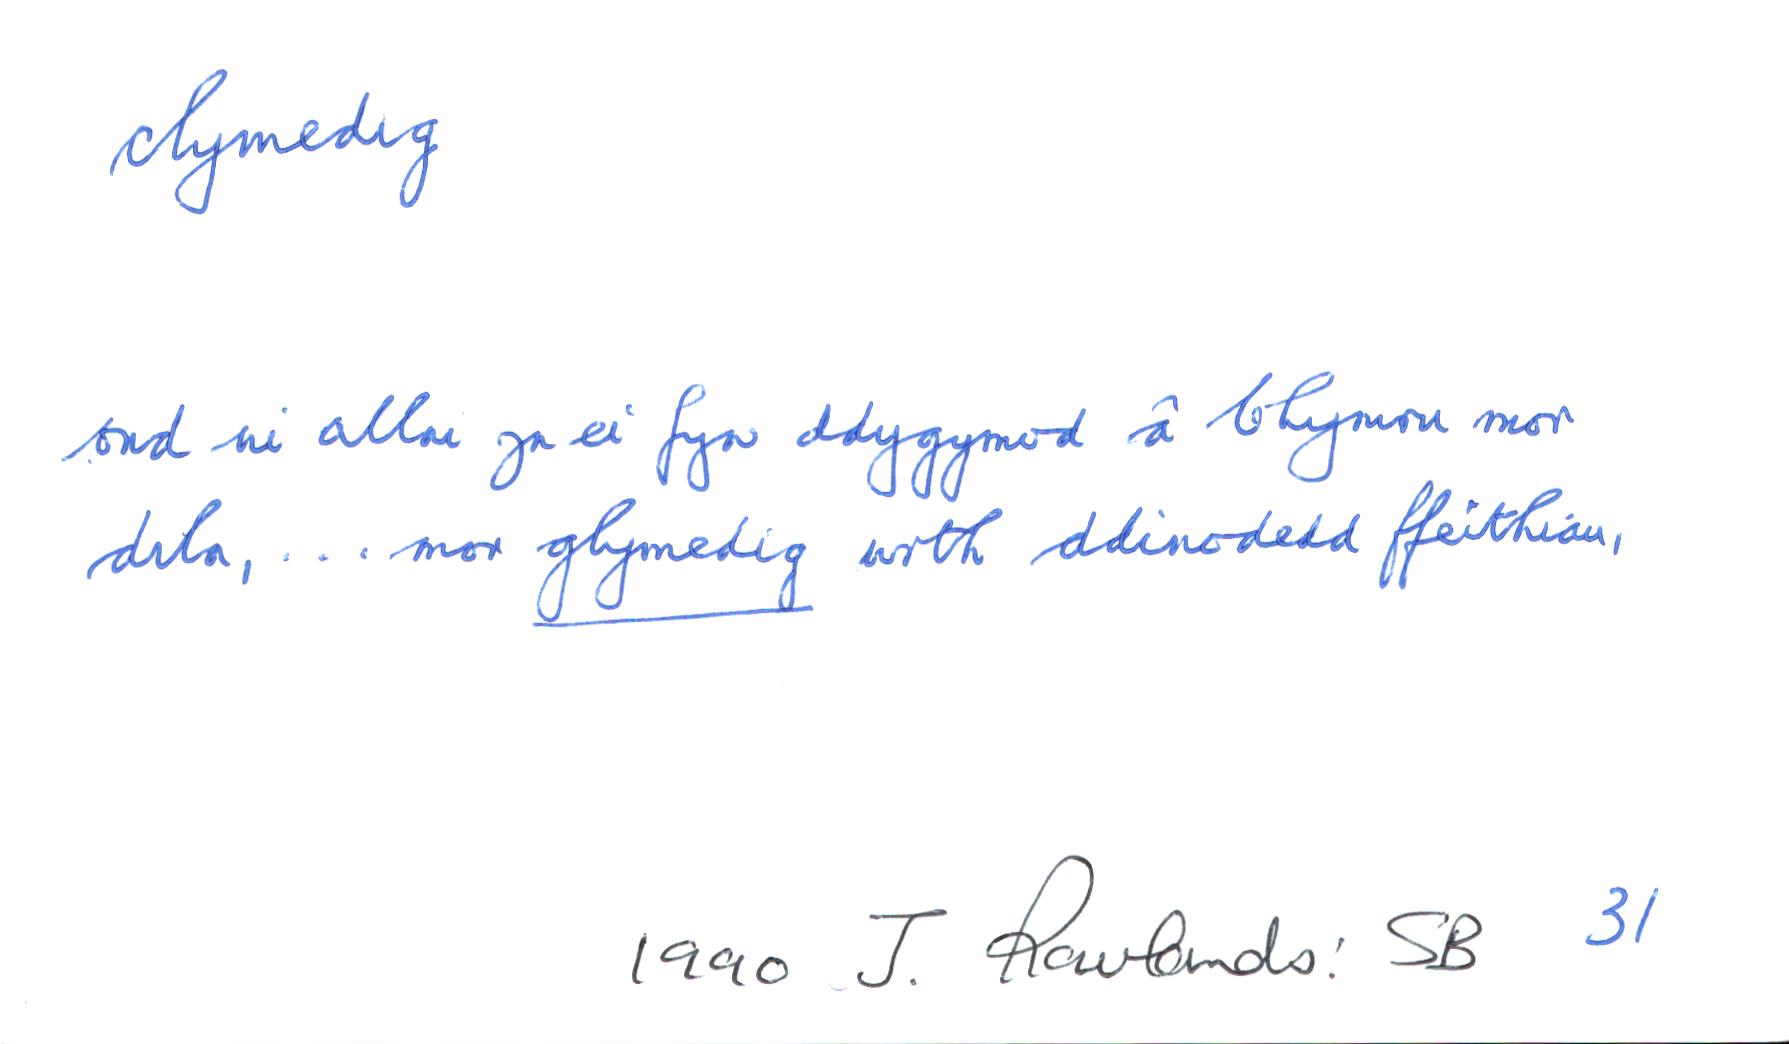 clymedig
ond ni allai yn ei fyw ddygymod â chlymau mor
dila, ... mor glymedig wrth ddinodedd ffeithiau,
1990 J. Rowlands: SB 31